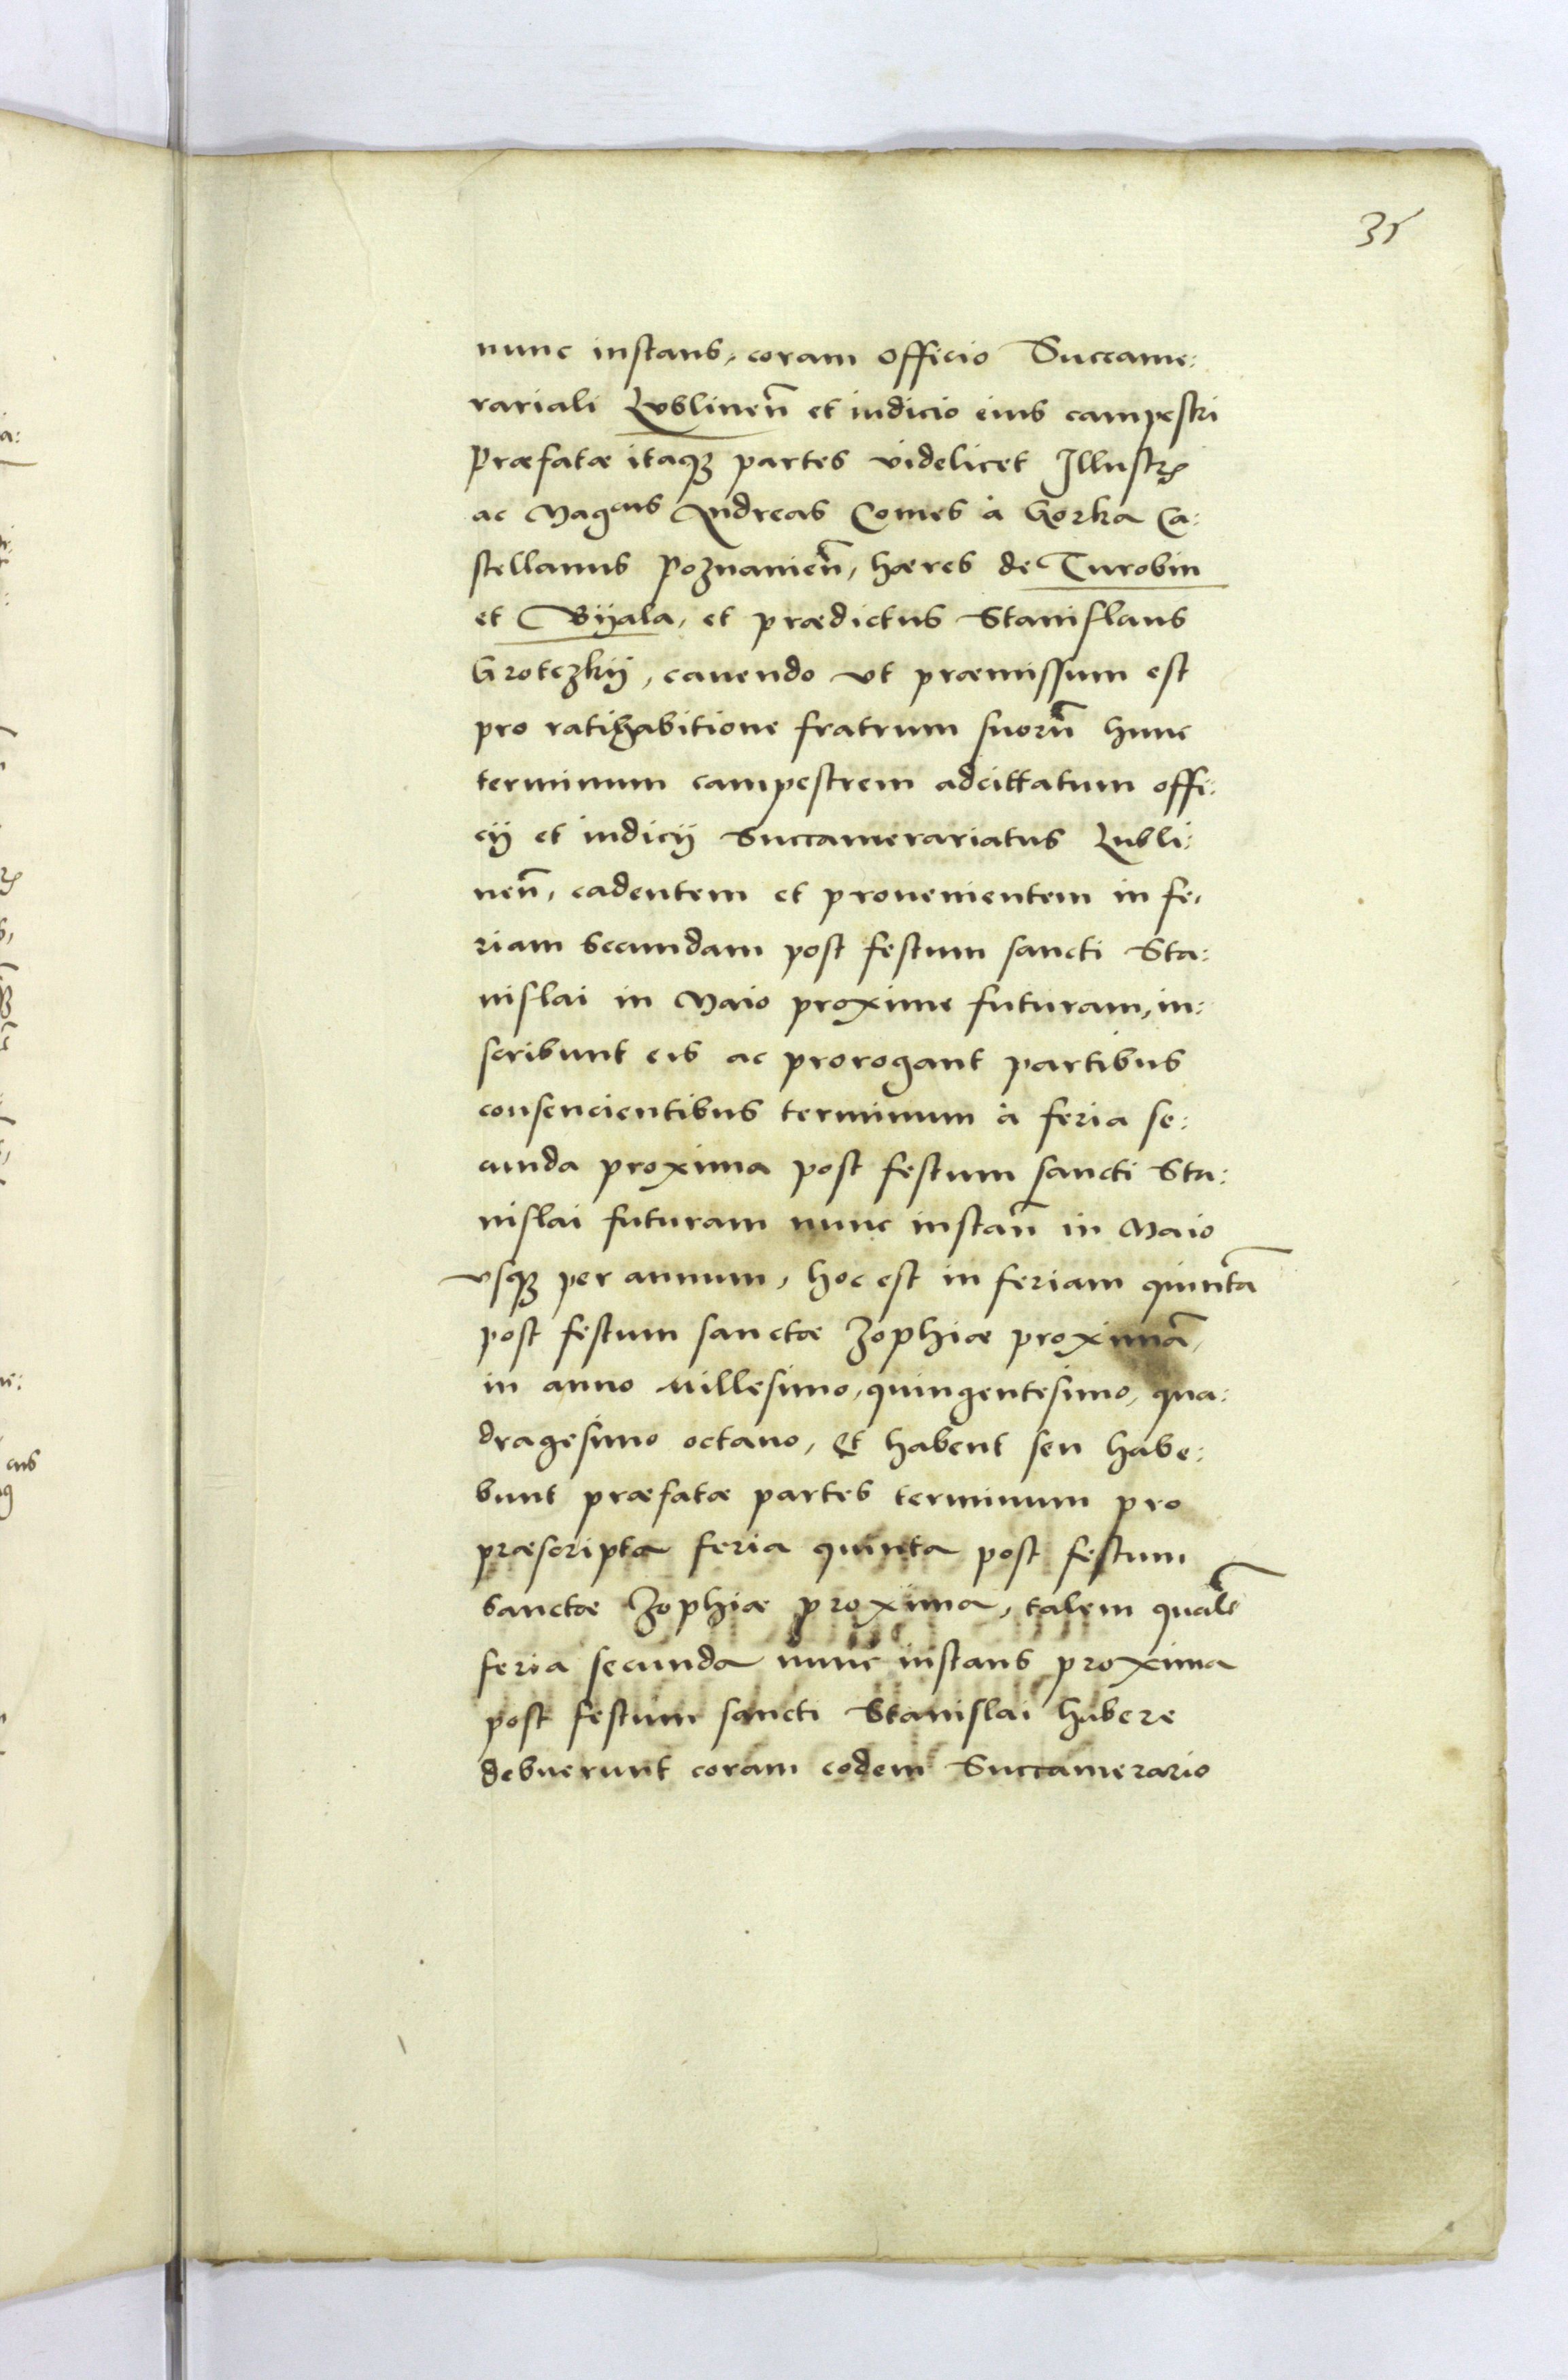 35
nunc instans, coram officio Succame:
rariali Lublinen̄ et iudicio eius campestri
Præfatæ itaqꝫ partes videlicet Illustꝛ̄
ac Magcus Andreas Comes à Gorka Ca:
stellanus Poznanien̄, hæres de Turobin
et Biÿala, et prædictus Stanislaus
Grotczkÿ, cauendo vt præmissum est
pro ratihabitione fratrum suorū hunc
terminum campestrem adcittatum offi:
cÿ et iudicÿ Succamerariatus Lubli:
nen̄, cadentem et prouenientem in fe:
riam secundam post festum sancti Sta:
nislai in Maio proxime futuram, in:
scribunt eis ac prorogant partibus
consencientibus terminum à feria se:
cunda proxima post festum sancti Sta:
nislai futuram nunc instan̄ in Maio
vsqꝫ per annum, hoc est in feriam quintā
post festum sanctæ Zophiæ proximā,
in anno Millesimo, quingentesimo, qua:
dragesimo octauo, Et habent seu habe:
bunt præfatæ partes terminum pro
præscripta feria quinta post festum
sanctæ Zophiæ proxima, talem qualē
feria secunda nunc instans proxima
post festum sancti Stanislai habere
debuerunt coram eodem Succamerario